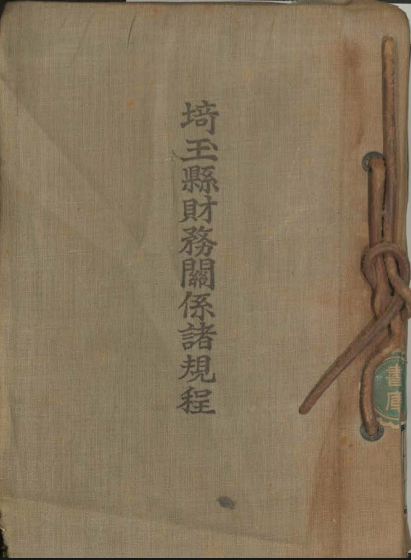 埼玉縣財務關係諸規程
書庫